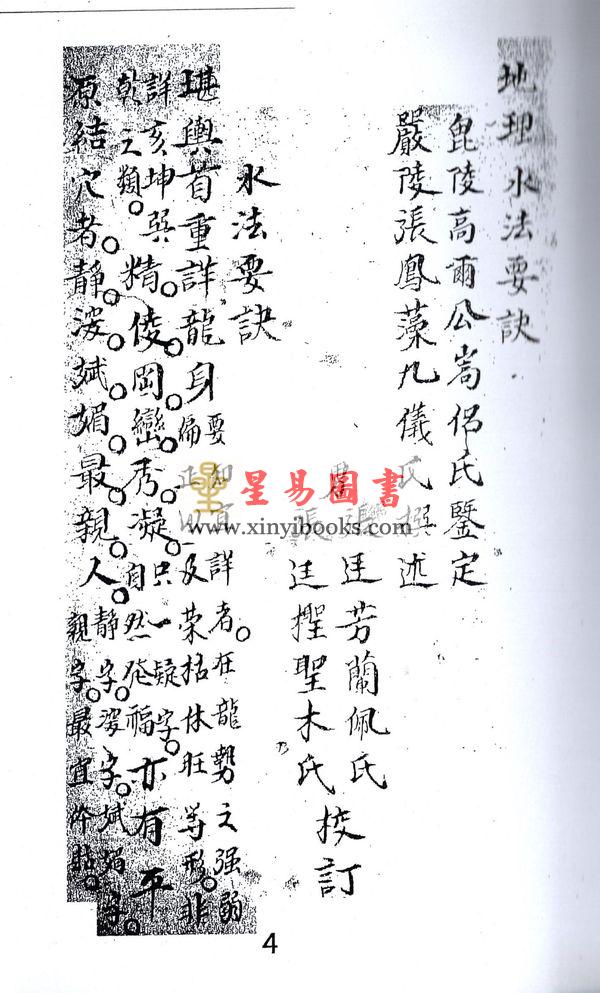 地理水法要訣
毘陵高爾公嵩侶氏鑒定
嚴陵張鳳藻九儀氏撰述
男張廷芳蘭佩氏
張廷擢聖木氏
校訂
水法要訣
堪輿首重詳龍身要知宜詳者。在龍勢之强弱偏正以及荣枯休旺等形。非
詳亥坤巽乾之類。精俊岡巒秀凝。只一疑字。自然發福亦有平
原結穴者。静波斌媚最親人。静字。波字。斌媚字。親字。最宜吟
星易圖書
www.xinyibooks.com
4